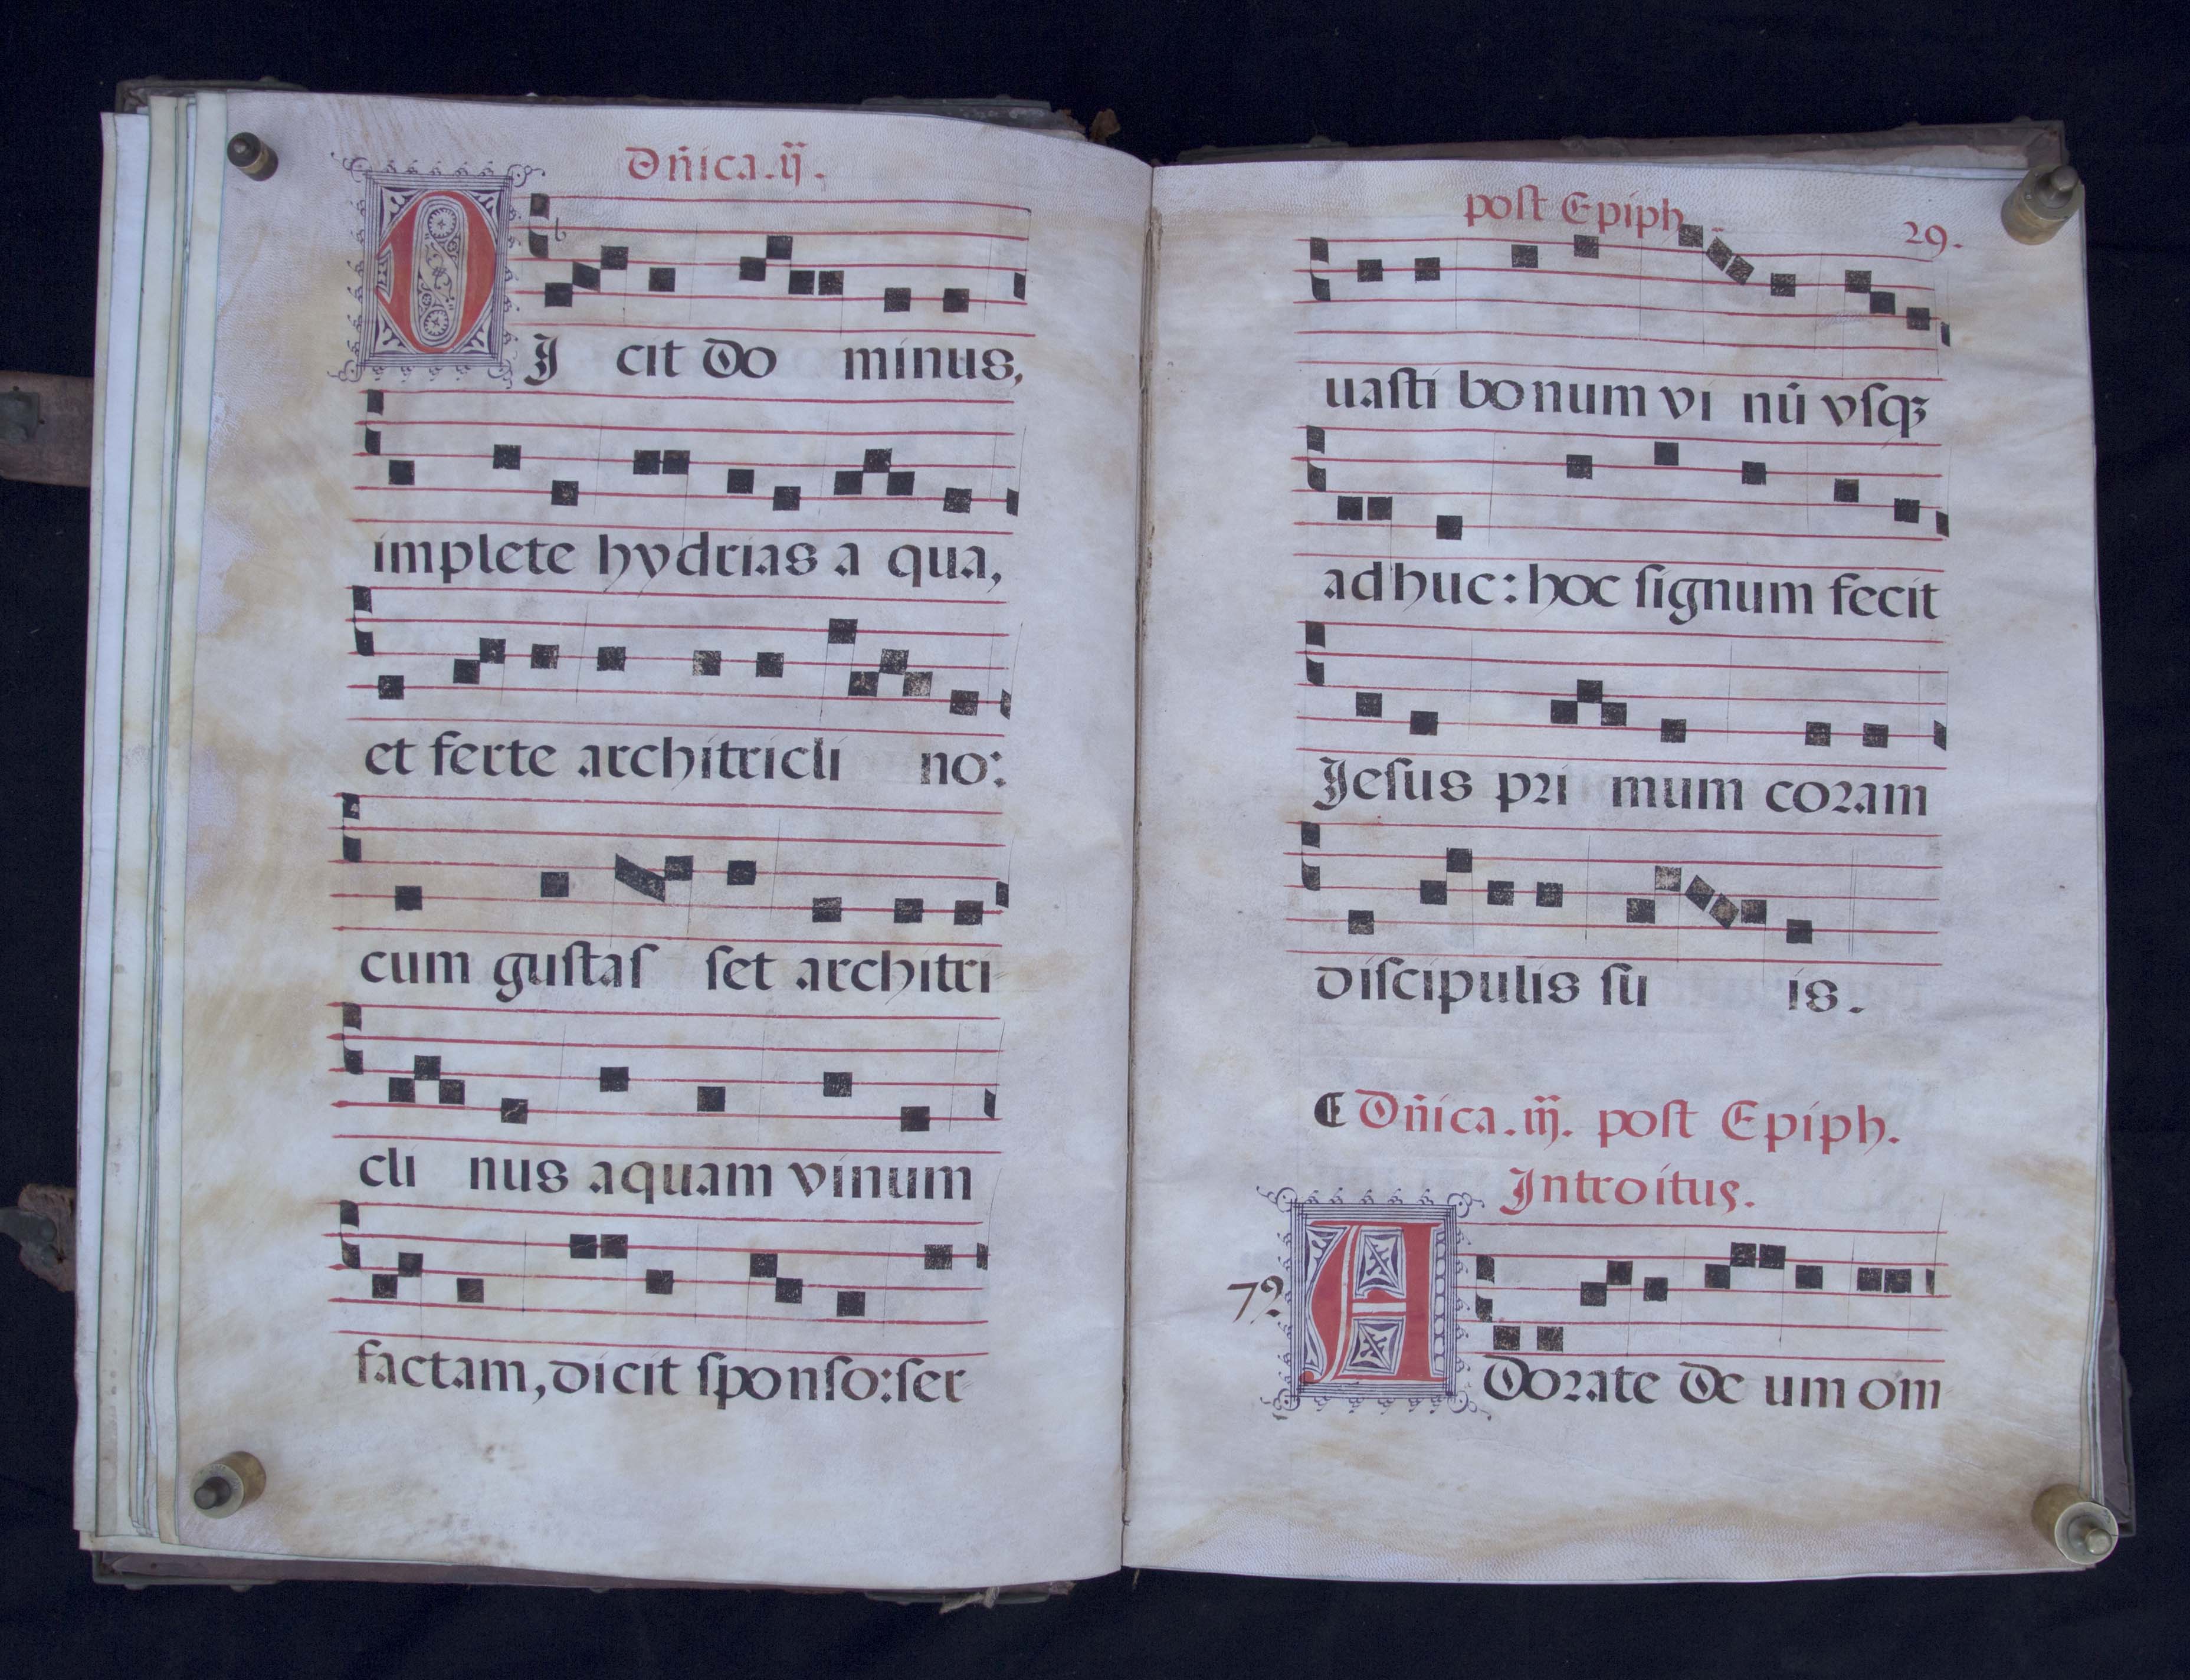 Dñica.ij.
DJ cit Do minus,
implete hydrias a qua,
et ferte architricli no:
cum guſtaſ ſet architri
cli nus aquam vinum
factam, dicit ſponſo: ſer
poſt Epiph. 29.
uaſti bonum vi nū vſqꝫ
adhuc: hoc ſignum fecit
Jeſus pꝛi mum coꝛam
diſcipulis ſu is.
Dñica.iij. poſt Epiph.
Introitus.
7?
ADoꝛate De um om